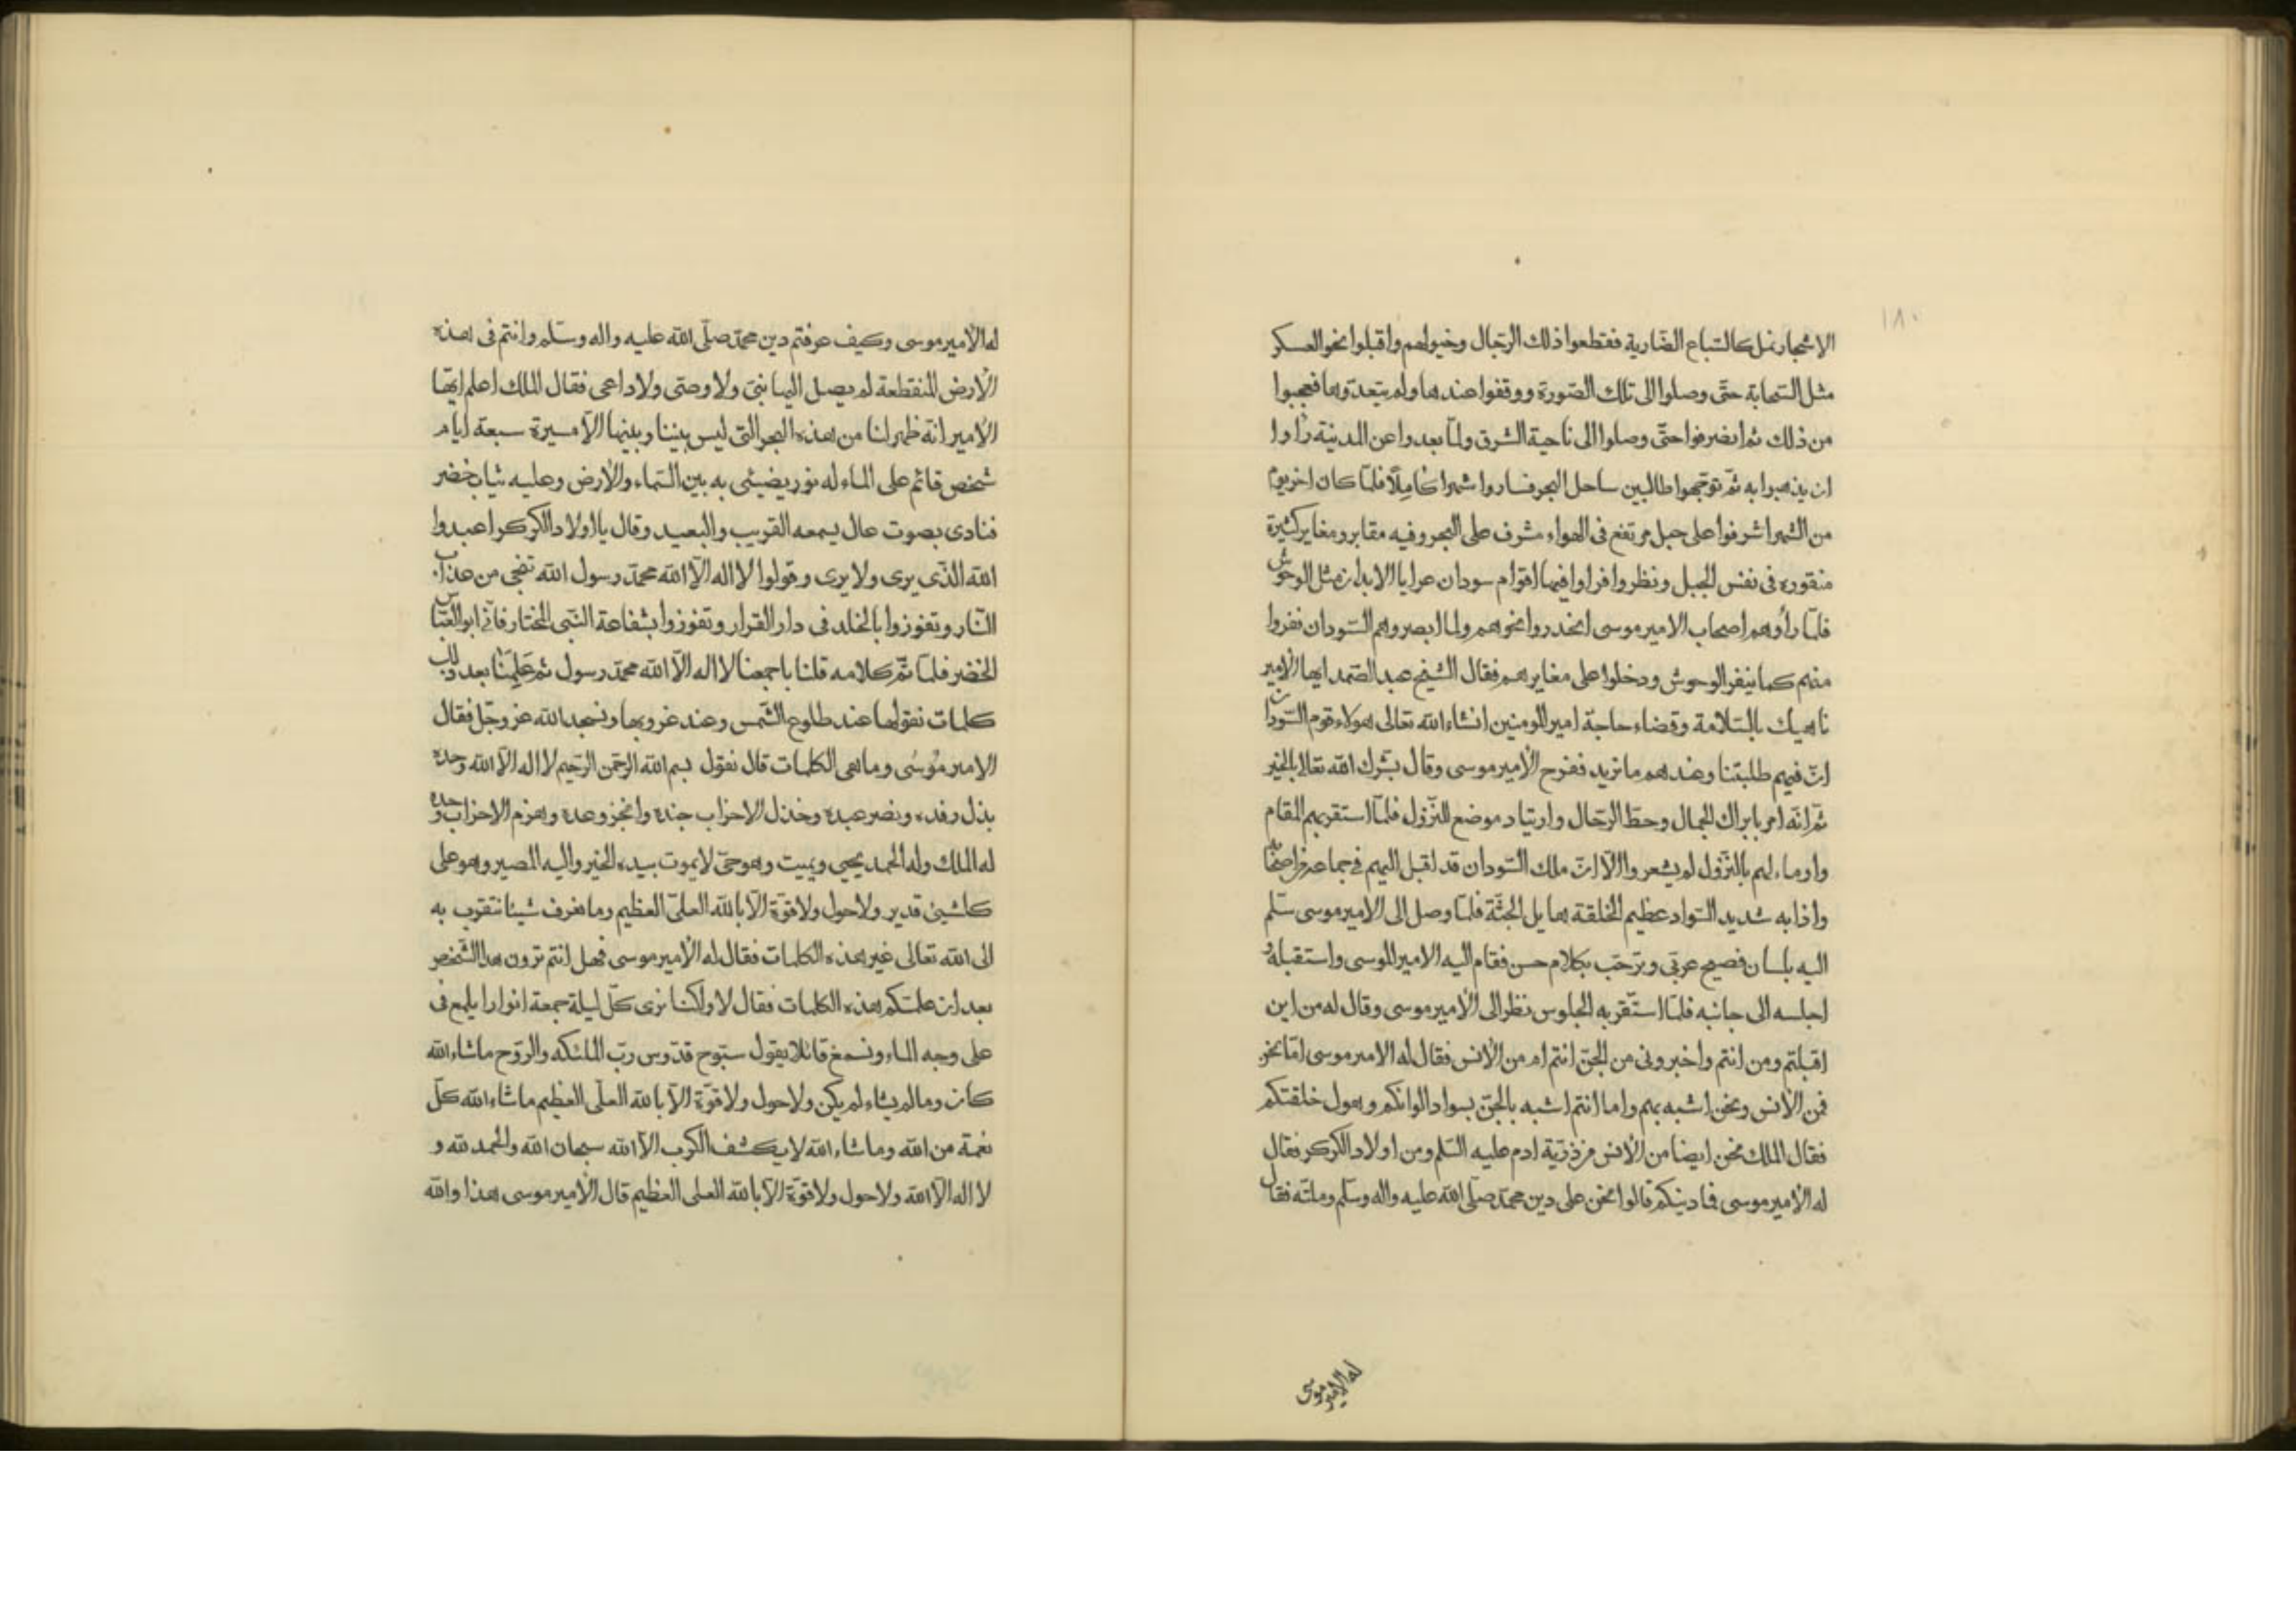 ١٨٠
الاشجار نمل كالسّباع الضّارية فقطعوا ذلك الرّجال وخيولهم واقبلوا نحو العسكر
مثل السّحابة حتّى وصلوا الى تلك الصّورة ووقفوا عندها ولم يتعدّوها فعجبوا
من ذلك ثم انصرفوا حتّى وصلوا الى ناحية الشرق ولمّا بعدوا عن المدينة رأوا
ان يذهبوا به ثمّ توجّهوا طالبين ساحل البحر فساروا شهرا كاملًا فلمّا كان اخر يوم
من الشهر اشرفوا على جبل مرتفع فى الهواء مشرف على البحر وفيه مقابر ومغاير كثيرة
منقوره فى نفس الجبل ونظروا فراوا فيها اقوام سودان عرايا الابدان مثل الوحوش
فلمّا رأوهم اصحاب الامير موسى انحدروا نحوهم ولما ابصروهم السّودان نفروا
منهم كما ينفر الوحوش ودخلوا على مغايرهم فقال الشّيخ عبد الصّمد ايها الأمير
ناهيك بالسّلامة وقضاء حاجة امير المومنين انشاء الله تعالى هولاء قوم السّودان
انّ فيهم طلبتنا وعندهم ما نريد ففرح الأمير موسى وقال بشّرك الله تعالا بالخير
ثمّ انّه امر بابراك الجمال وحطّ الرّحال وارتياد موضع للنّزول فلمّا استقر بهم المقام
واوماء لهم بالنّزول لم يشعروا الّا انّ ملك السّودان قد اقبل اليهم فى جماعة من اصحابه
واذا به شديد السّواد عظيم الخلقة هايل الجثّة فلمّا وصل الى الامير موسى سلّم
اليه بلسان فصيح عربّى وترحّب بكلام حسن فقام اليه الامير الموسى واستقباله و
اجلسه الى جانبه فلمّا استّقر به الجلوس نظر الى الأمير موسى وقال له من اين
اقبلتم ومن انتم واخبرونى من الجنّ انتم ام من الأنس فقال له الامير موسى امّا نحن
فمن الأنس ونحن اشبه بهم واما انتم اشبه بالجنّ بسواد الوانكم وهول خلقتكم
فقال الملك نحن ايضا من الأنس من ذرّية ادم عليه السّلم ومن اولاد الكركر فقال
له الأمير موسى فما دينكم قالوا نحن على دين محمّد صلّى الله عليه واله وسلّم وملته فقال
له الأمير موسى
له الأمير موسى وكيف عرفتم دين محمّد صلّى الله عليه واله وسلّم وانتم فى هذه
الأرض المنقطعة لم يصل اليها نبىّ ولا وصّى ولا داعى فقال الملك اعلم ايّها
الأمير انه ظهر لنا من هذه البحر الّتى ليس بيننا وبينها الّا مسيرة سبعة ايام
شخص قائم على الماء له نور يضيئى به بين السّماء والأرض وعليه ثياب خضر
فنادى بصوت عال يسمعه القريب والبعيد وقال يا اولاد الكركر اعبدوا
الله الّذى يرى ولا يرى وقولوا لا اله الّا الله محمّد رسول الله تنجى من عذاب
النّار وتفوزوا بالخلد فى دار القرار وتفوزوا بشفاعة النّبى المختار فانّى ابو العبّاس
الخضر فلمّا تمّ كلامه قلنا باجمعنا لا اله الّا الله محمّد رسول ثم علّمنا بعد ذلك
كلمات نقولها عند طلوع الشّمس وعند غروبها ونسجد الله عز وجّل فقال
الامير موسى وما هى الكلمات قال نقول بسم الله الرّحمن الرّحيم لا اله الّا الله وحده
بذل رفده ونصر عبده وخذل الاحزاب جنده وانجز وعده وهزم الاحزاب وحده
له الملك وله الحمد يحيى ويميت وهو حىّ لا يموت بيده الخير واليه المصير وهو على
كلشيئ قدير ولا حول ولا قوّة الّا بالله العلىّ العظيم وما نعرف شيئا نتقرب به
الى الله تعالى غير هذه الكلمات فقال له الأمير موسى فهل انتم ترون هذا الشّخص
بعد ان علمتكم هذه الكلمات فقال لا ولكنّا نرى كلّ ليلة جمعة انوارا يلمع فى
على وجه الماء ونسمع قائلا يقول سبّوح قدّوس ربّ الملئكه والرّوح ماشاء الله
كان وما لم يشاء لم يكن ولا حول ولا قوّة الّا بالله العلّى العظيم ماشاء الله كلّ
نعمة من الله وما شاء الله لا يكشف الكرب الّا الله سبحان الله والحمد لله و
لا اله الّا الله ولا حول ولا قوّة الّا بالله العلى العظيم قال الأمير موسى هذا والله